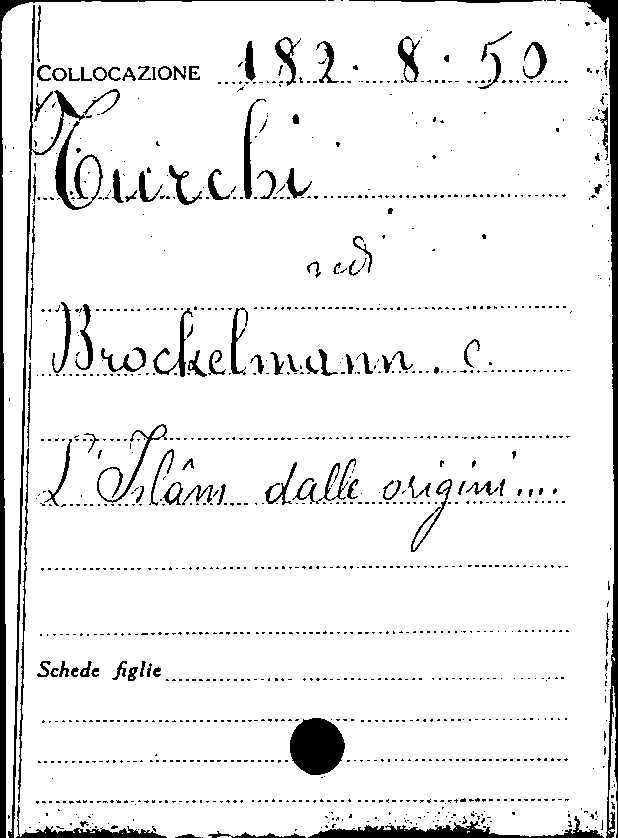 COLLOCAZIONE 182. 8. 50
Turchi
vedi
Brockelmann. C.
L'Islâm dalle origini....
Schede figlie